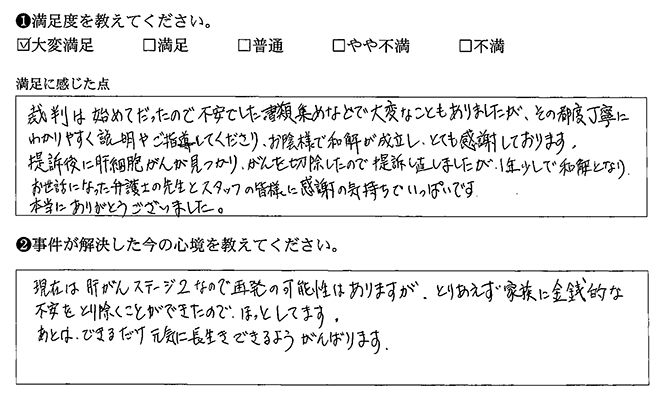 ❶満足度を教えてください。
☑大変満足 □満足 □普通 □やや不満 □不満
満足に感じた点
裁判は始めてだったので不安でした書類集めなどで大変なこともありましたが、その都度丁寧に
わかりやすく説明やご指導してくださり、お陰様で和解が成立し、とても感謝しております。
提訴後に肝細胞がんが見つかり、がんを切除したので提訴し直しましたが、1年少しで和解となり、
お世話になった弁護士の先生とスタッフの皆様に感謝の気持ちでいっぱいです
本当にありがとうございました。
❷事件が解決した今の心境を教えてください。
現在は肝がんステージ2なので再発の可能性はありますが、とりあえず家族に金銭的な
不安をとり除くことができたので、ほっとしてます。
あとは、できるだけ元気に長生きできるようがんばります.